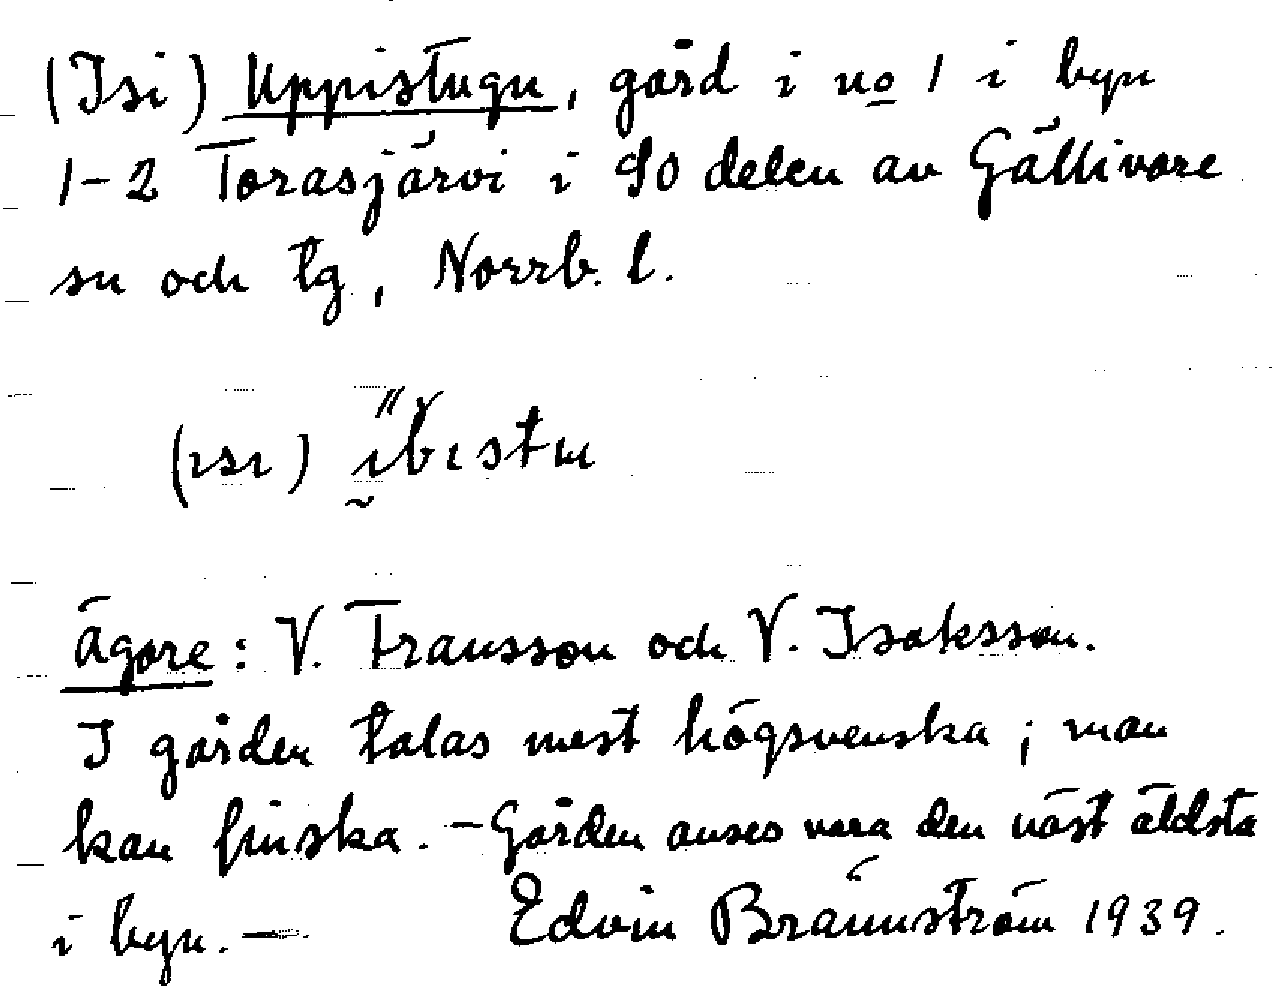 (Isi) Uppistugu, gård i no 1 i byn
1-2 Torasjärvi i SO delen av Gällivare
sn och tg, Norrb. l.
(ısı)
Ägare: V. Fransson och V. Isaksson.
I gården talas mest högsvenska; man
kan finska. - Gården anses vara den näst äldsta
i byn. - Edvin Brännström 1939.